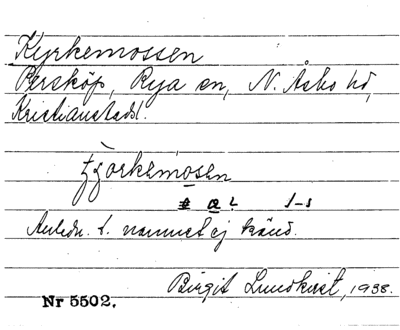 Kyrkemossen
Perstorp, Rya sn, N. Åsbo hd,
Kristianstadsl.
tjorkemosen
Anledn. t. namnet ej känd.
Birgit Lundkvist, 1938.
Nr 5502.